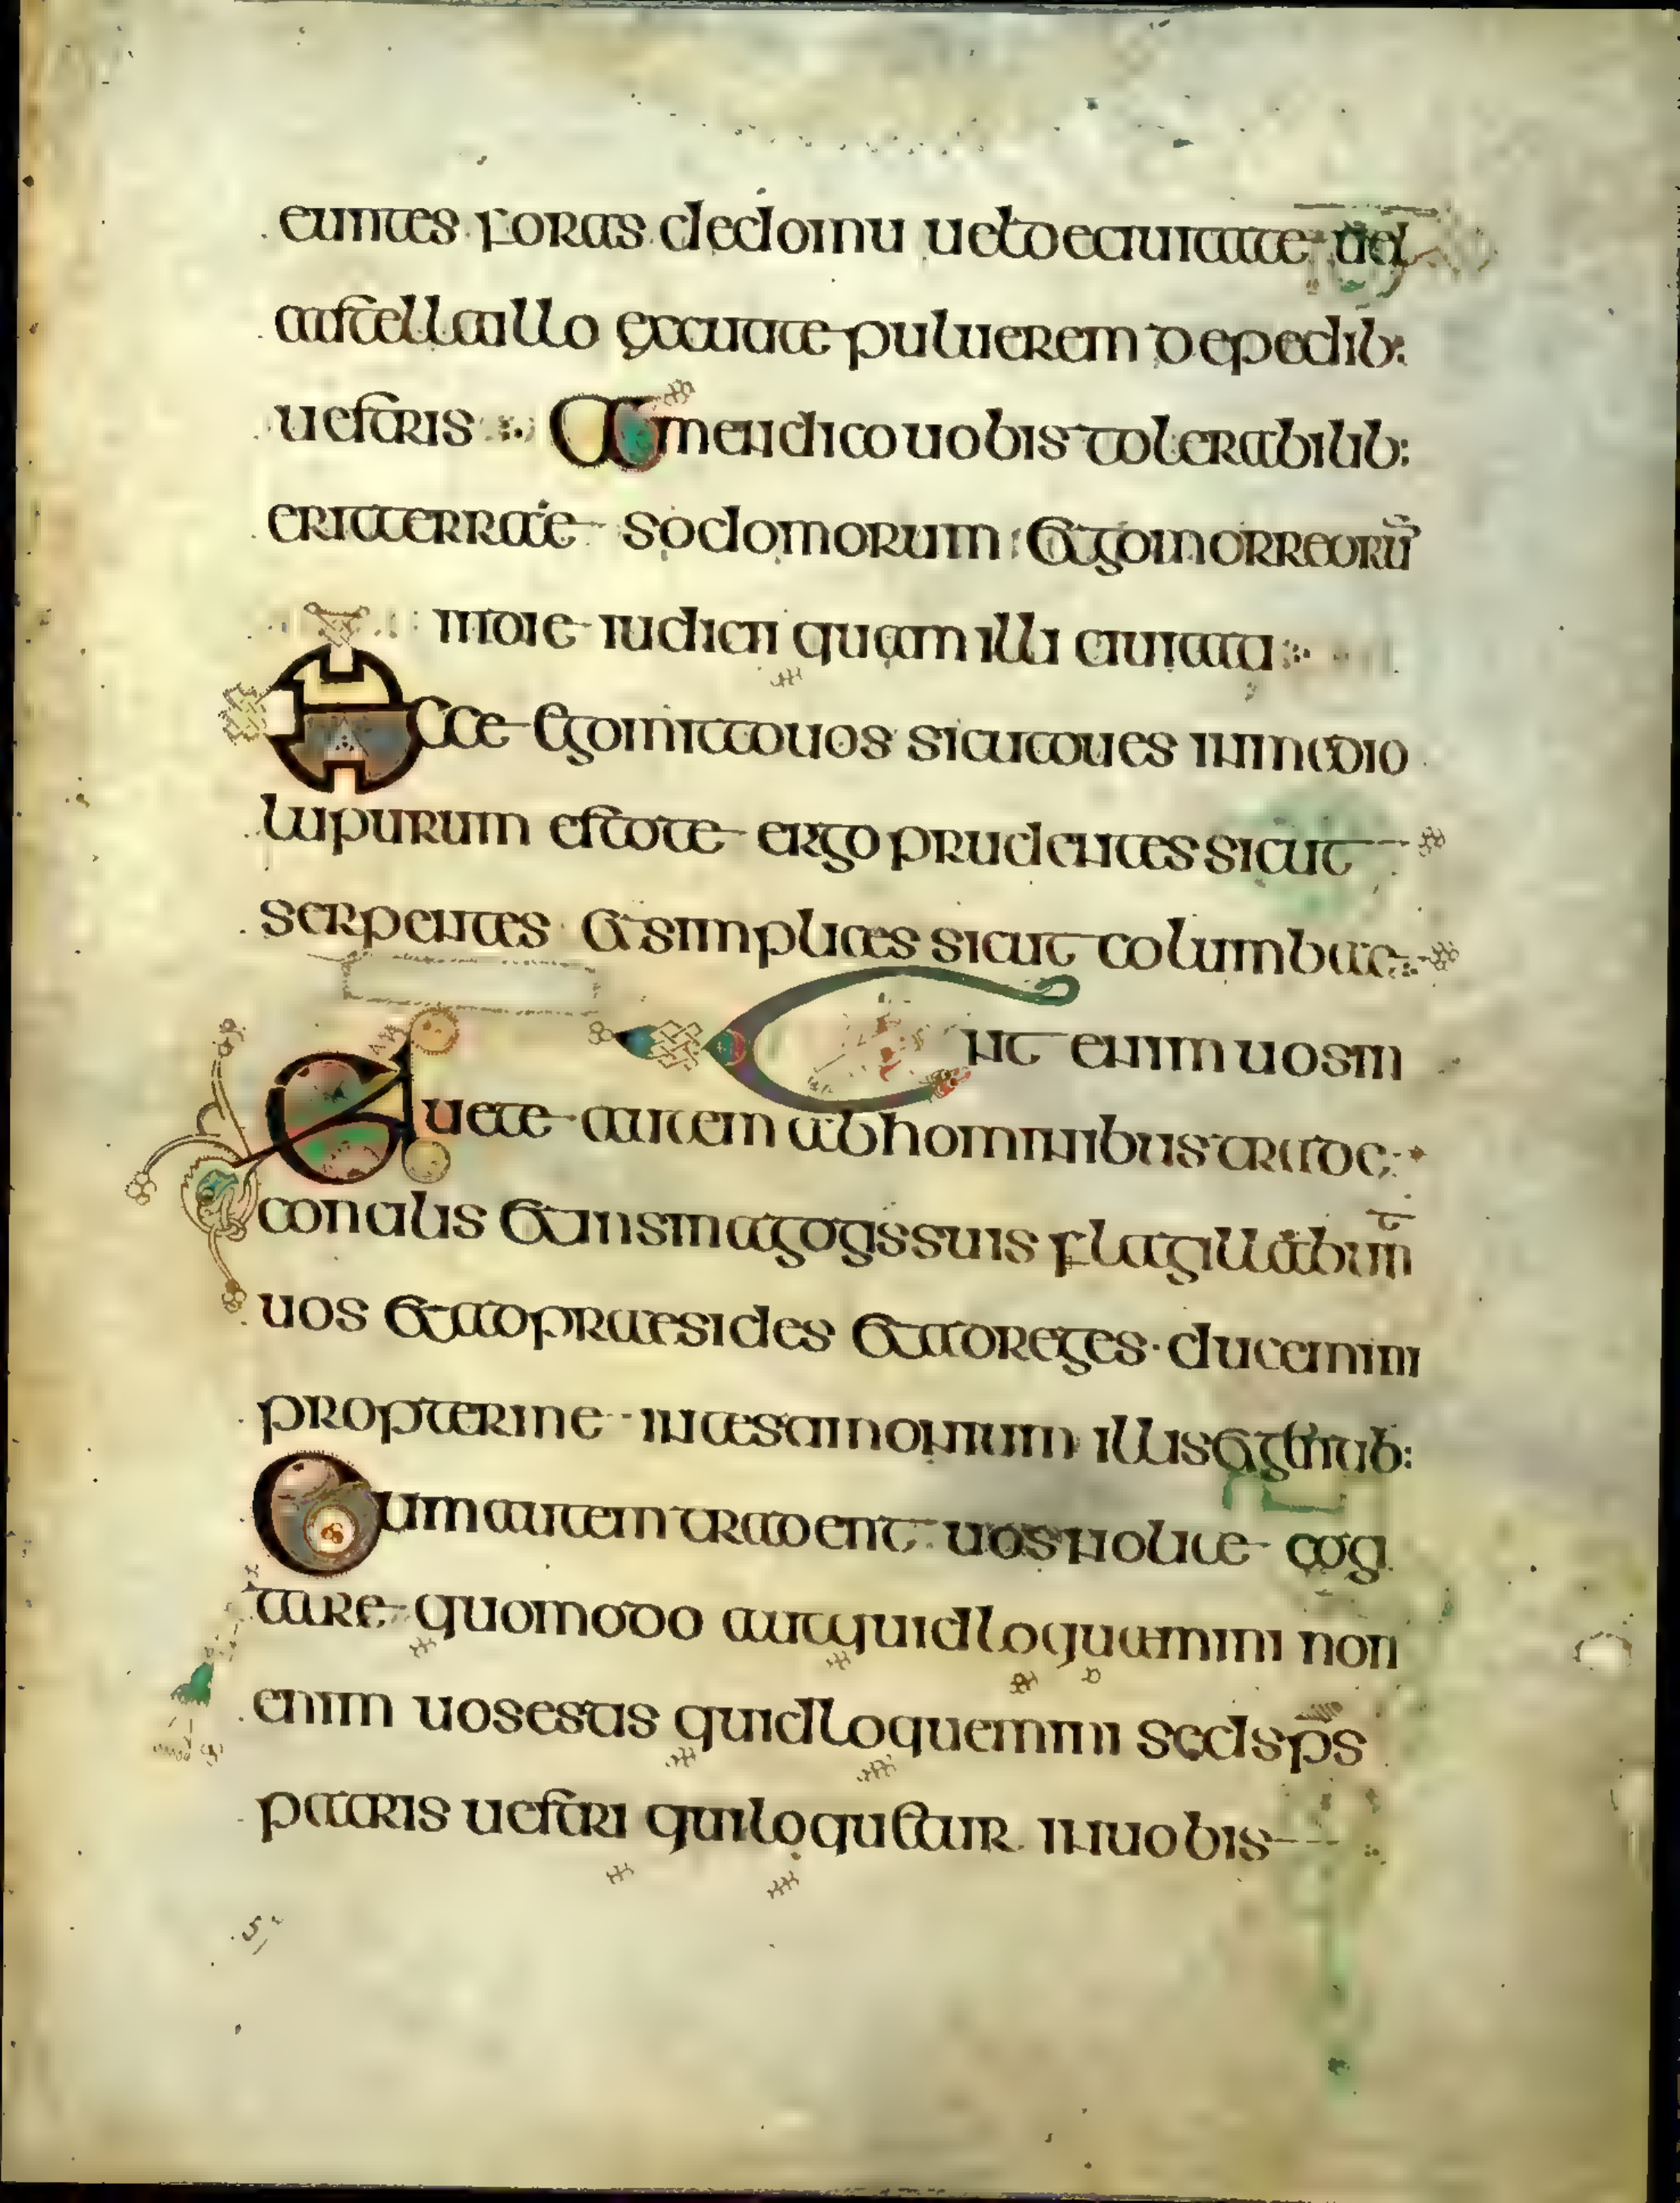 euntes foras dedomu uel deciuitate uel
castellaillo excutite puluerem depedib:
uestris Amendico uobis tolerabilib:
erit terrae sodomorum et gomorreorū
indie iudicii quam illi ciuitati
Ecce ego mitto uos sicut oues inmedio
lupurum estote ergo prudentes sicut
serpentes et simplices sicut columbae
ent enim uos in
Cauete autem ab hominibus trad
conciliis et insinagogis suis flagillabunt
uos et adpraesides et adreges ducemini
propter me intestimonium illis et gentib:
Cum autem tradent uos nolite cogi
tare quomodo aut quid loquamini non
enim uos estis quid loquemini sed sp̄s
patris uestri qui loquitur inuobis